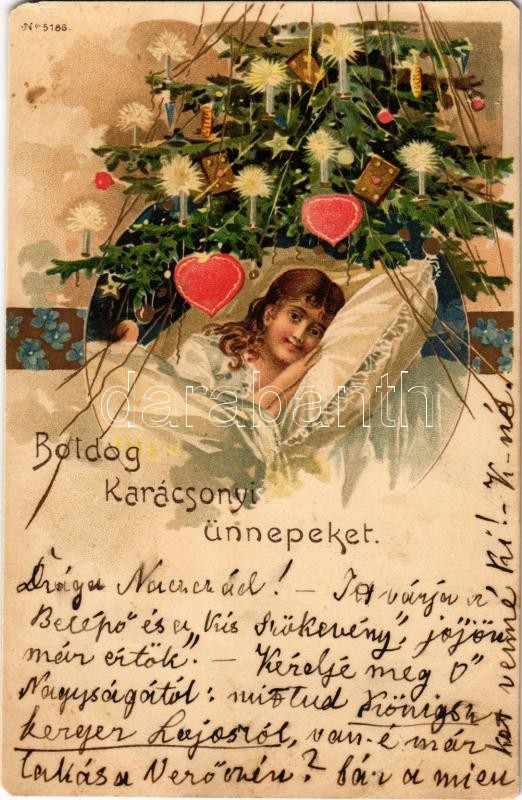 No 5186.
darabanth
Boldog
Karácsonyi
ünnepeket.
Drága ! – Itt várja a
Belépő és a "Kis Szökevény", jöjjön
már értök". – Kérdje meg Ő
Nagyságától: mit tud Königsz
kerger Lajosról, van-é már
lakása Verőczén? bár a mien
ket venné ki! – K-né.